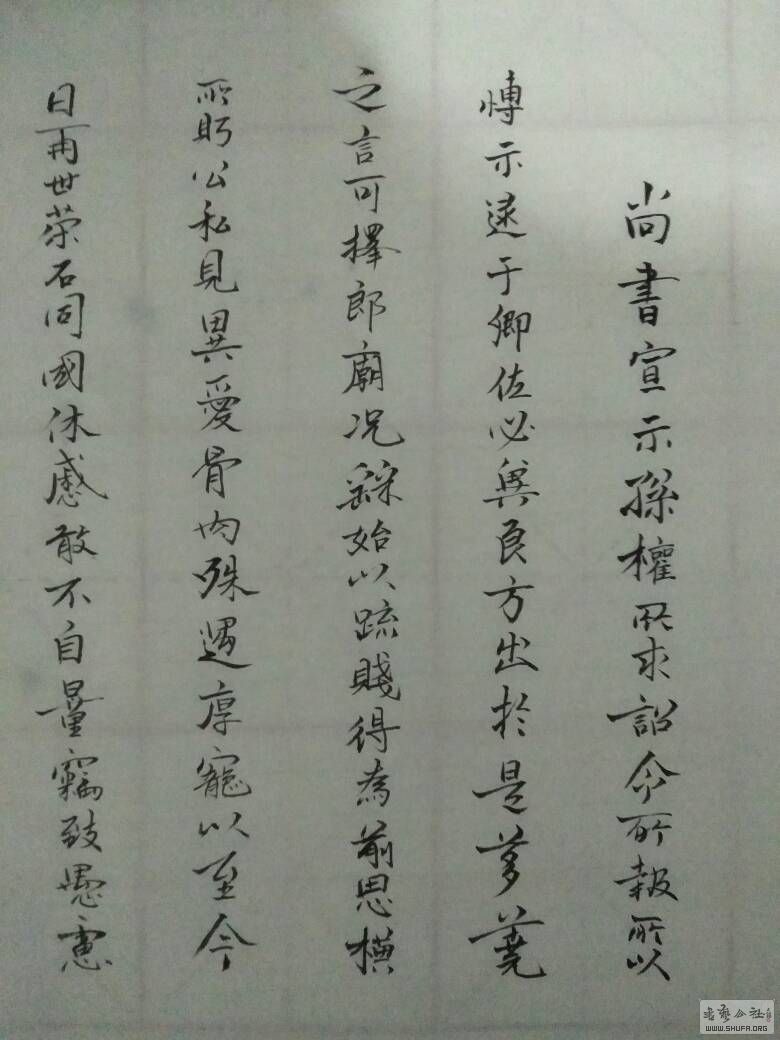 尚書宣示孫權所求詔令所報所以
愽示逮于卿佐必冀良方出於是芻蕘
之言可擇郎廟况繇始以疏賤得為前恩橫
所眄公私見異愛骨肉殊遇厚寵以至今
日再世榮名同國休慼敢不自量竊致愚慮
WWW.SHUFA.ORG